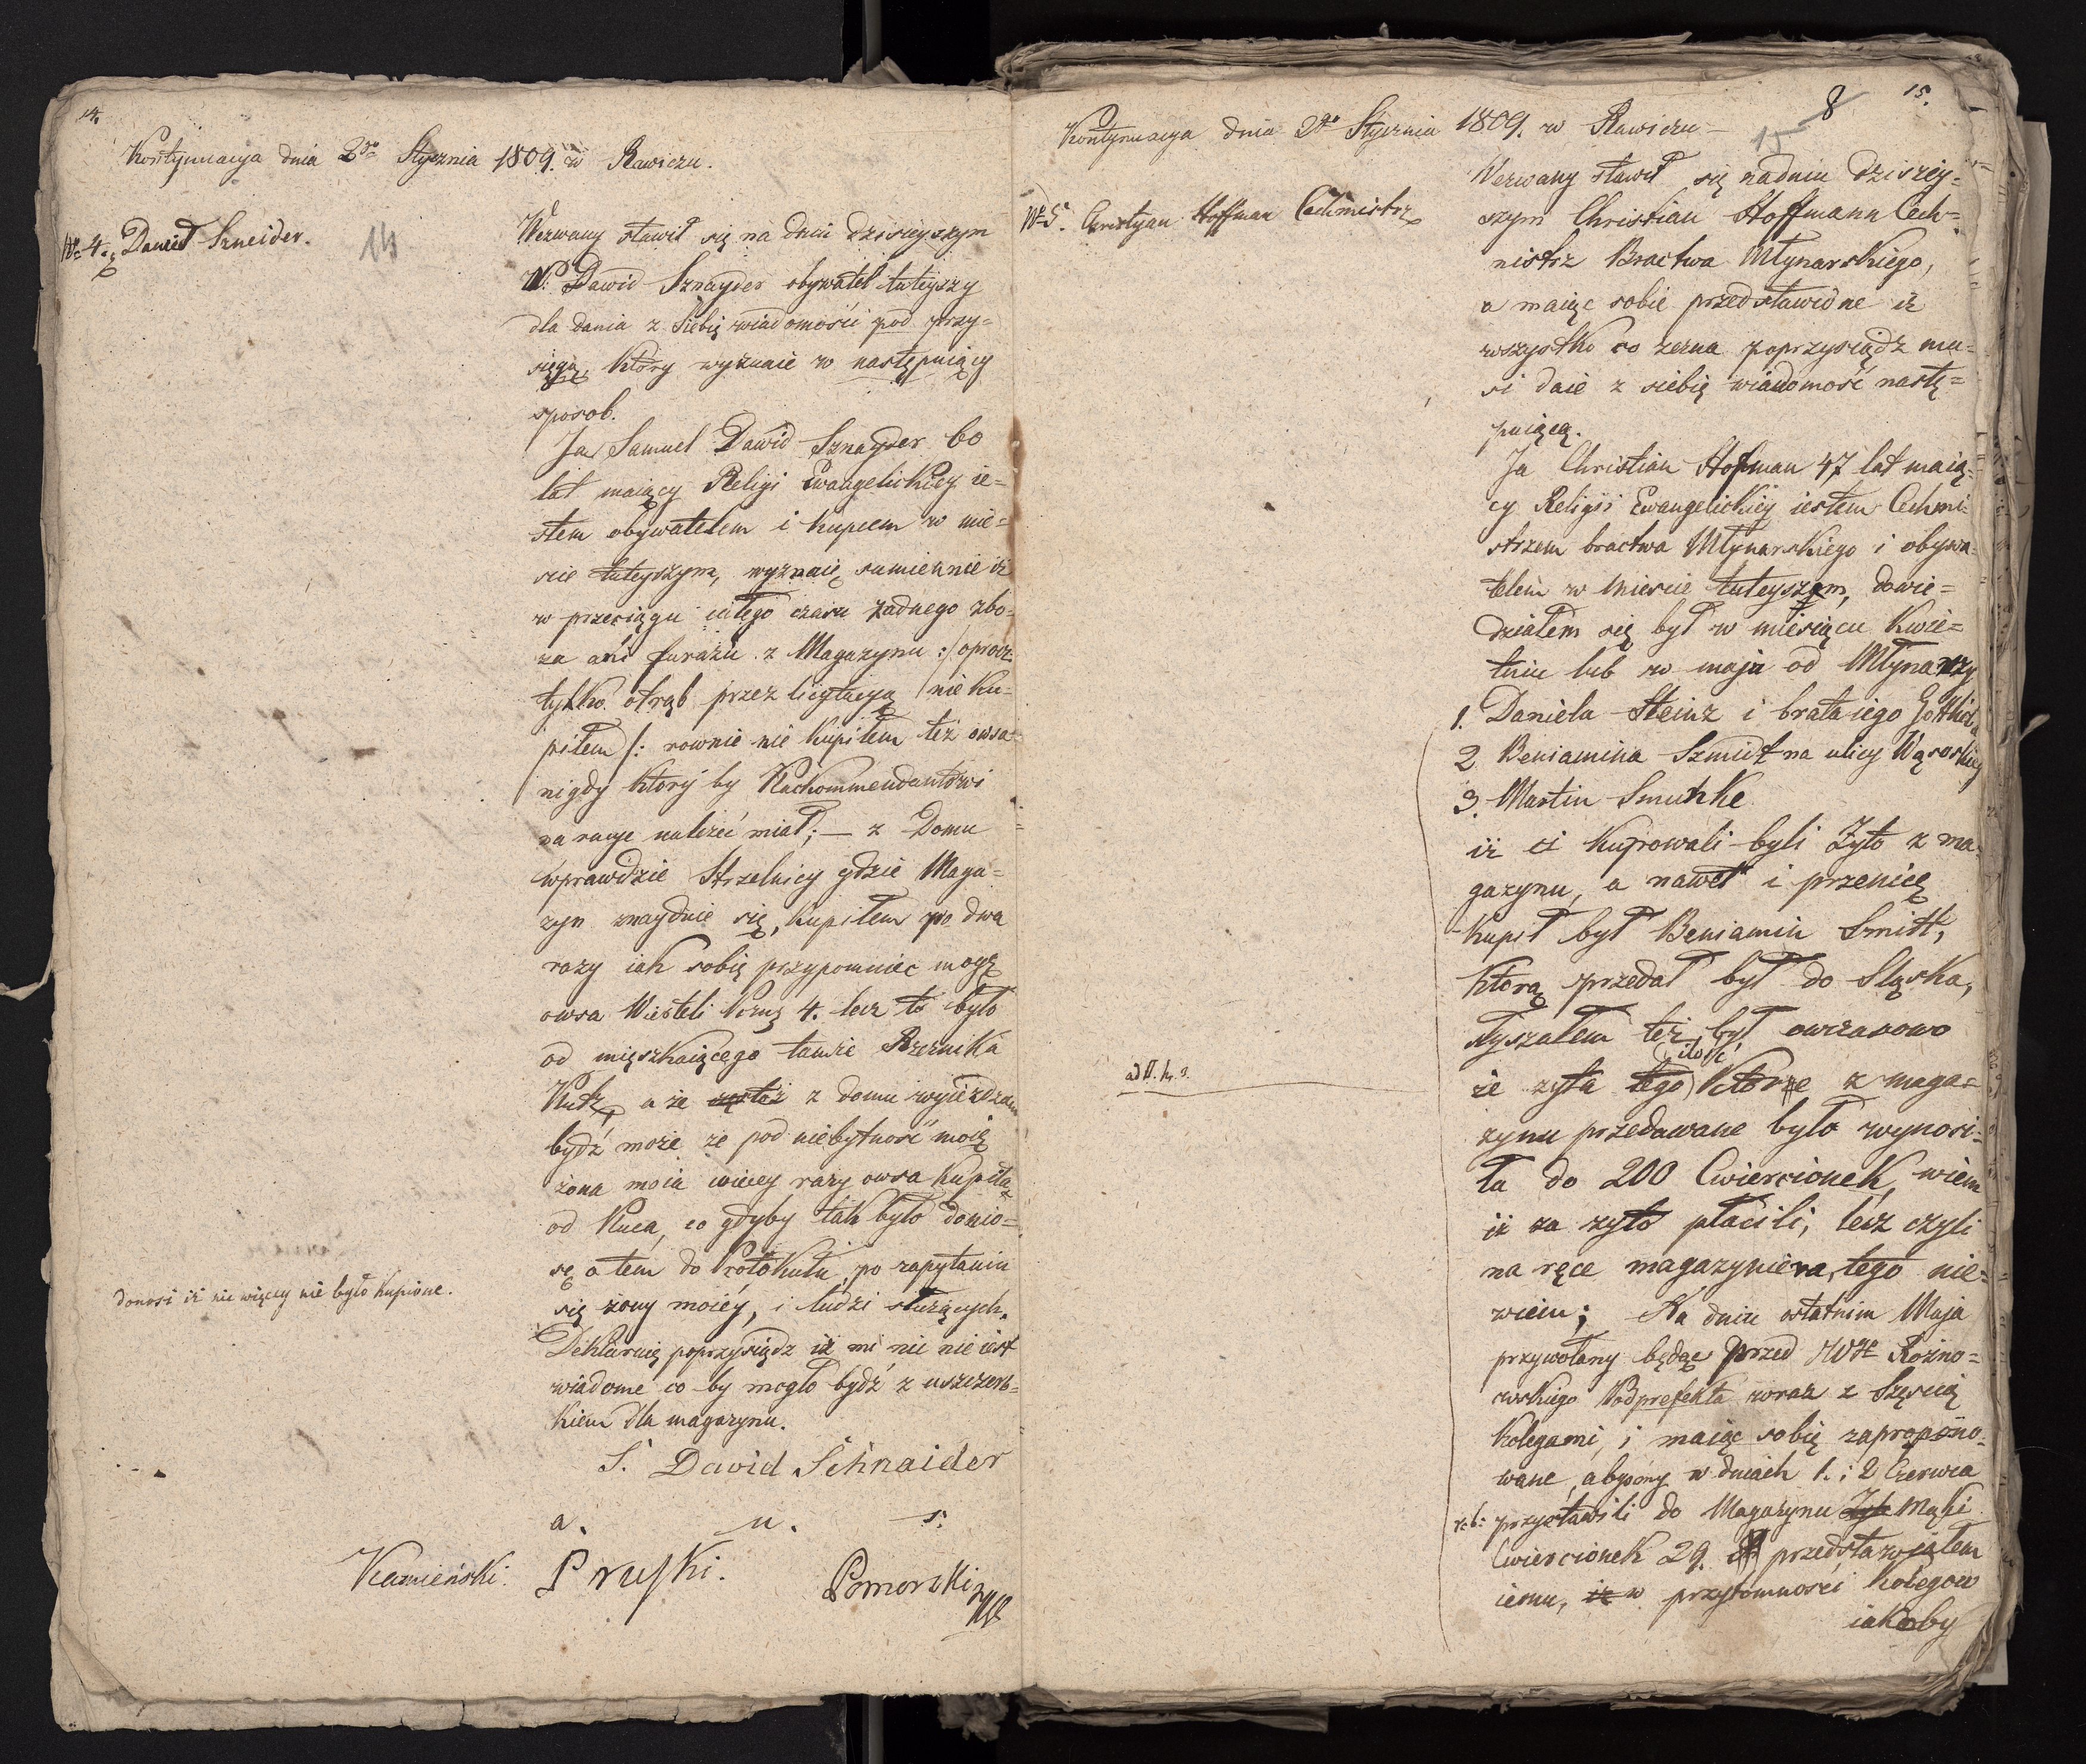 14.
Kontynuacya dnia 2go Stycznia 1809. w Rawiczu.
No 4. Dawid Szneider.
14
Wezwany stawił się na dniu dzisieyszym
W. Dawid Sznayder obywatel tuteyszy
dla dania z siebię wiadomości pod przy=
sięgą, który wyznaie w następuiący
sposob.
Ja Samuel Dawid Sznayder 60
lat maiący Religi Ewangelickiey ie=
stem obywatelem i kupcem w mie=
scie tuteyszym, wyznaię sumiennie iż
w przeciągu całego czasu żadnego zbo=
ża ani furażu z Magazynu :/ oprocz
tylko otrąb przez licytacyą / nie ku=
piłem /: rownie nie kupiłem też owsa
nigdy ktory by Kachommendantowi
na racye należeć miał; — z Domu
wprawdzie Strzelnicy gdzie Maga=
zyn znayduie się, kupiłem po dwa
razy iak sobię przypomniec mogę
owsa Wiesteli 4. lecz to było
od mięszkaiącego tamże Rzeznika
Kutz, a że z domu wyieżdzam
bydź może że pod niebytność moię
żona moia więcey razy owsa kupiła
od Kuca, co gdyby tak było donio=
sę o tem do Protokułu, po zapytaniu
się żony moiéy, i ludzi służących.
Deklaruię poprzysiądz iż mi nic nie iest
wiadome co by mogło bydź z uszczerb=
kiem dla magazynu.
donosi iż nic więcey nie było kupione.
S. David Schnaider
a. u. s.
Kamieński. Pruski. Pomorski
15.
8
15
Kontynuacya dnia 2go Stycznia 1809. w Rawiczu —
No 5. Chrystyan Hoffman Cechmistrz
Wezwany stawił się na dniu dzisiey=
szym Christian Hoffmann Cech=
mistrz Bractwa Młynarskiego,
a maiąc sobie przedstawione iż
wszystko co zezna poprzysiądz mu=
si daie z siebię wiadomość nastę=
puiącą.
Ja Christian Hofman 47 lat maią=
cy Religii Ewangelickiey iestem Cechmi=
strzem bractwa Młynarskiego i obywa=
telem w Miescie tuteyszem, dowie=
działem się był w miesiącu Kwie=
tniu lub w maju od Młynarzy
1. Daniela Steinz i brata iego Gottlieb
2 Beniamina Szmidt na ulicy Wąsoskiey
3. Martin Smuhke
iż ci kupowali byli Zyto z ma=
gazynu, a nawet i przenicę
kupił był Beniamin Smitt,
którą przedał był do Sląska,
słyszałem też był owczasowo
że zyta tego ilość które z maga=
zynu przedawane było wynosi=
ła do 200 Cwiercionek, wiem
iż za zyto płacili, lecz czyli
na ręce magazyniera, tego nie=
wiem; Na dniu ostatnim Maja
przywołany będąc przed JWgo Rozno=
wskiego Podprefekta wraz z Szęscią
kolegami, i maiąc sobię zapropono=
wane, abysmy w dniach 1. i 2 Czerwca
przystawili do Magazynu Zyta Mąki
Cwiercionek 29. przedstawiałem
iemu, iż w przytomnosci kolegow
iakoby